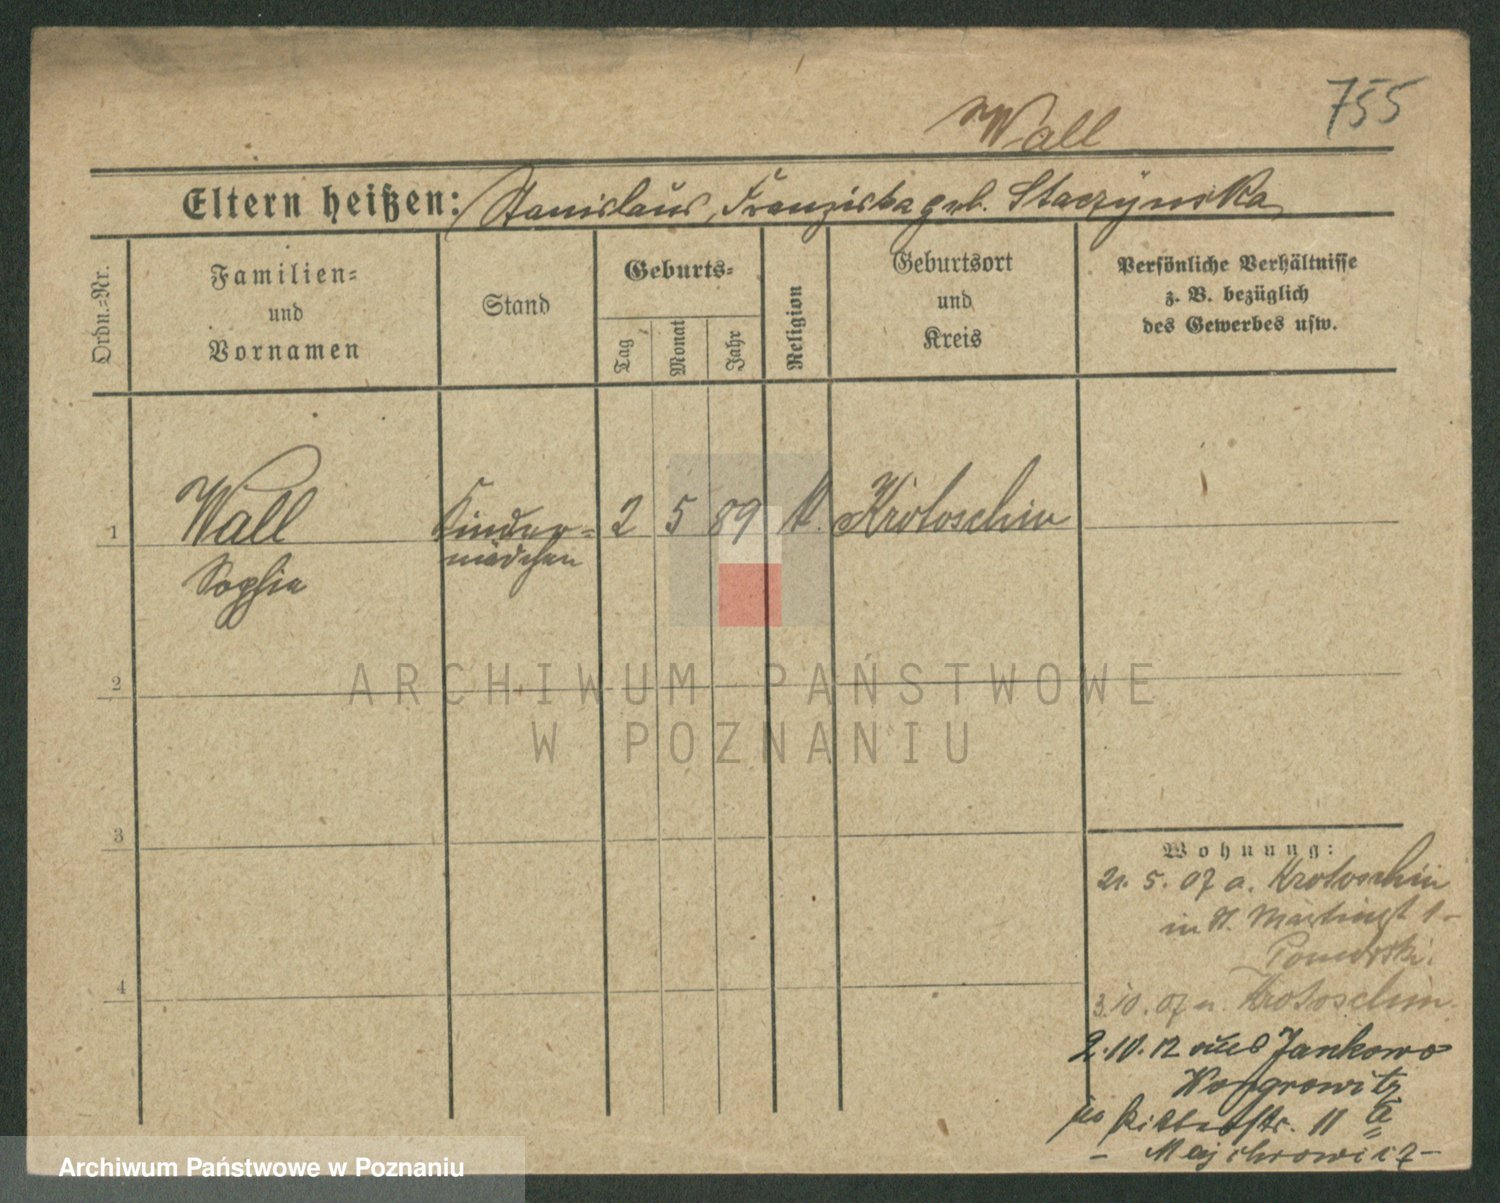 755
Wall
Eltern heißen: Stanislaus, Franziska geb. Staczynska
Ordn.-Nr.
Familien-
und
Vornamen
Stand
Geburts-
Tag
Monat
Jahr
Religion
Geburtsort
und
Kreis
Persönliche Verhältnisse
z. B. bezüglich
des Gewerbes usw.
1
Wall
Sophie
Kinder-
mädchen
2
5
89
k.
Krotoschin
2
3
4
Wohnung:
21. 5. 07 a. Krotoschin
in St. Martinst 1-
Pomorski.
3. 10. 07 n. Krotoschin.
2. 10. 12 aus Jankowo
Wongrowitz
11 a
- Majchrowicz -
ARCHIWUM PAŃSTWOWE
W POZNANIU
Archiwum Państwowe w Poznaniu